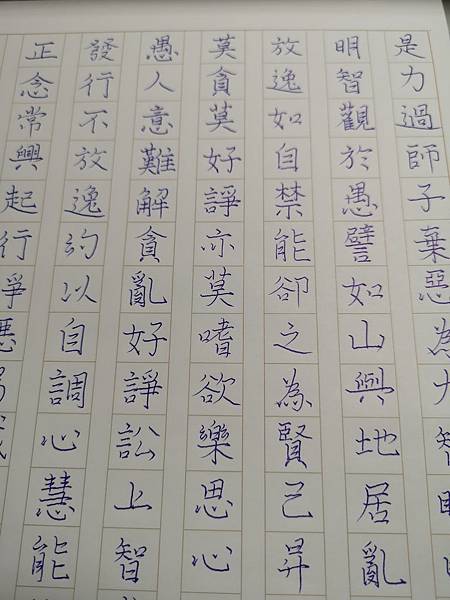 是力過師子棄惡為大智
明智觀於愚譬如山與地居亂
放逸如自禁能卻之為賢已昇
莫貪莫好諍亦莫嗜欲樂思心
愚人意難解貪亂好諍訟上智
發行不放逸約以自調心慧能
正念常興起行淨惡易滅